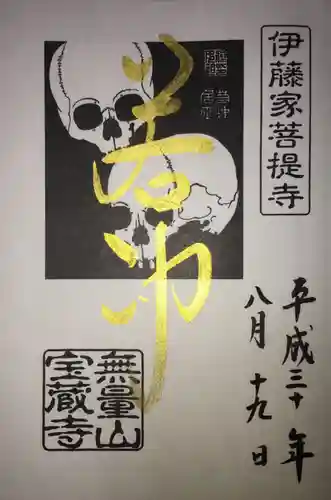 伊藤家菩提寺
平成三十年
八月十九日
若冲
無量山
宝蔵寺